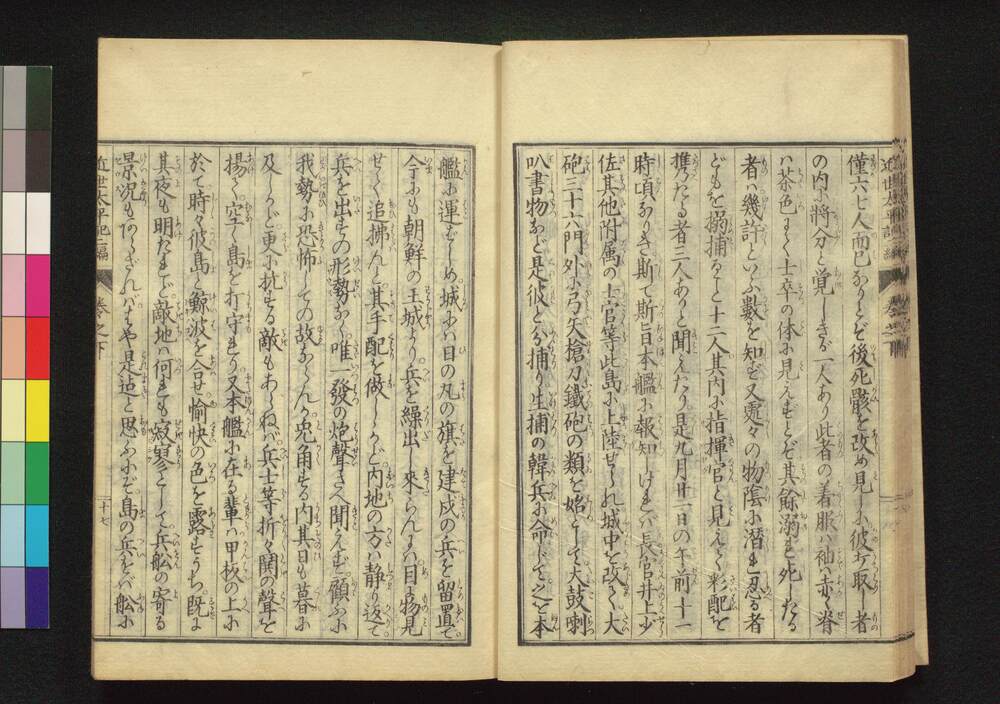 僅六七人而已なりとぞ後死骸を改め見しに彼方取りし者
の内に將分と覚しきが一人あり此者の着服ハ袖赤く脊
ハ茶色にて士卒の体に見えずとぞ其餘溺れ死したる
者ハ幾許といふ數を知ず又處々の物陰に潜れ忍る者
どもを搦捕ること十二人其内に指揮官と見えて彩配を
携へたる者三人ありと聞えたり是九月廿一日の午前十一
時頃なりき斯て斯旨本艦に報知しけれバ長官井上少
佐其他附属の士官等此島に上陸せられ城中を改めて大
砲三十六門外に弓矢搶刀鐵砲の類を始として大鼓喇
叭書物など是彼と分捕り生捕の韓兵に命じてこを本
近世太平記二編
艦に運ばしめ城にハ日の丸の旗を建戍の兵を留置て
今にも朝鮮の王城より兵を繰出し來らんにハ目に物見
せて追拂んと其手配を做しけれど内地の方ハ静り返て
兵を出すの形勢なく唯一發の炮聲さへ聞えず顧ふに
我勢に恐怖しての故ならんか兎角する内其日も暮に
及しかど更に抗する敵もあらねバ兵士等折々鬨の聲を
揚て空く島を打守れり又本艦に在る輩ハ甲板の上に
於て時々彼島と鯨波を合せ愉快の色を露すうち既に
其夜も明たれど敵地ハ何れも寂寥として兵舩の寄る
景况もあらざれバはや是迄と思ふにぞ島の兵をバ舩に
近世太平記二編
卷之下
二十七